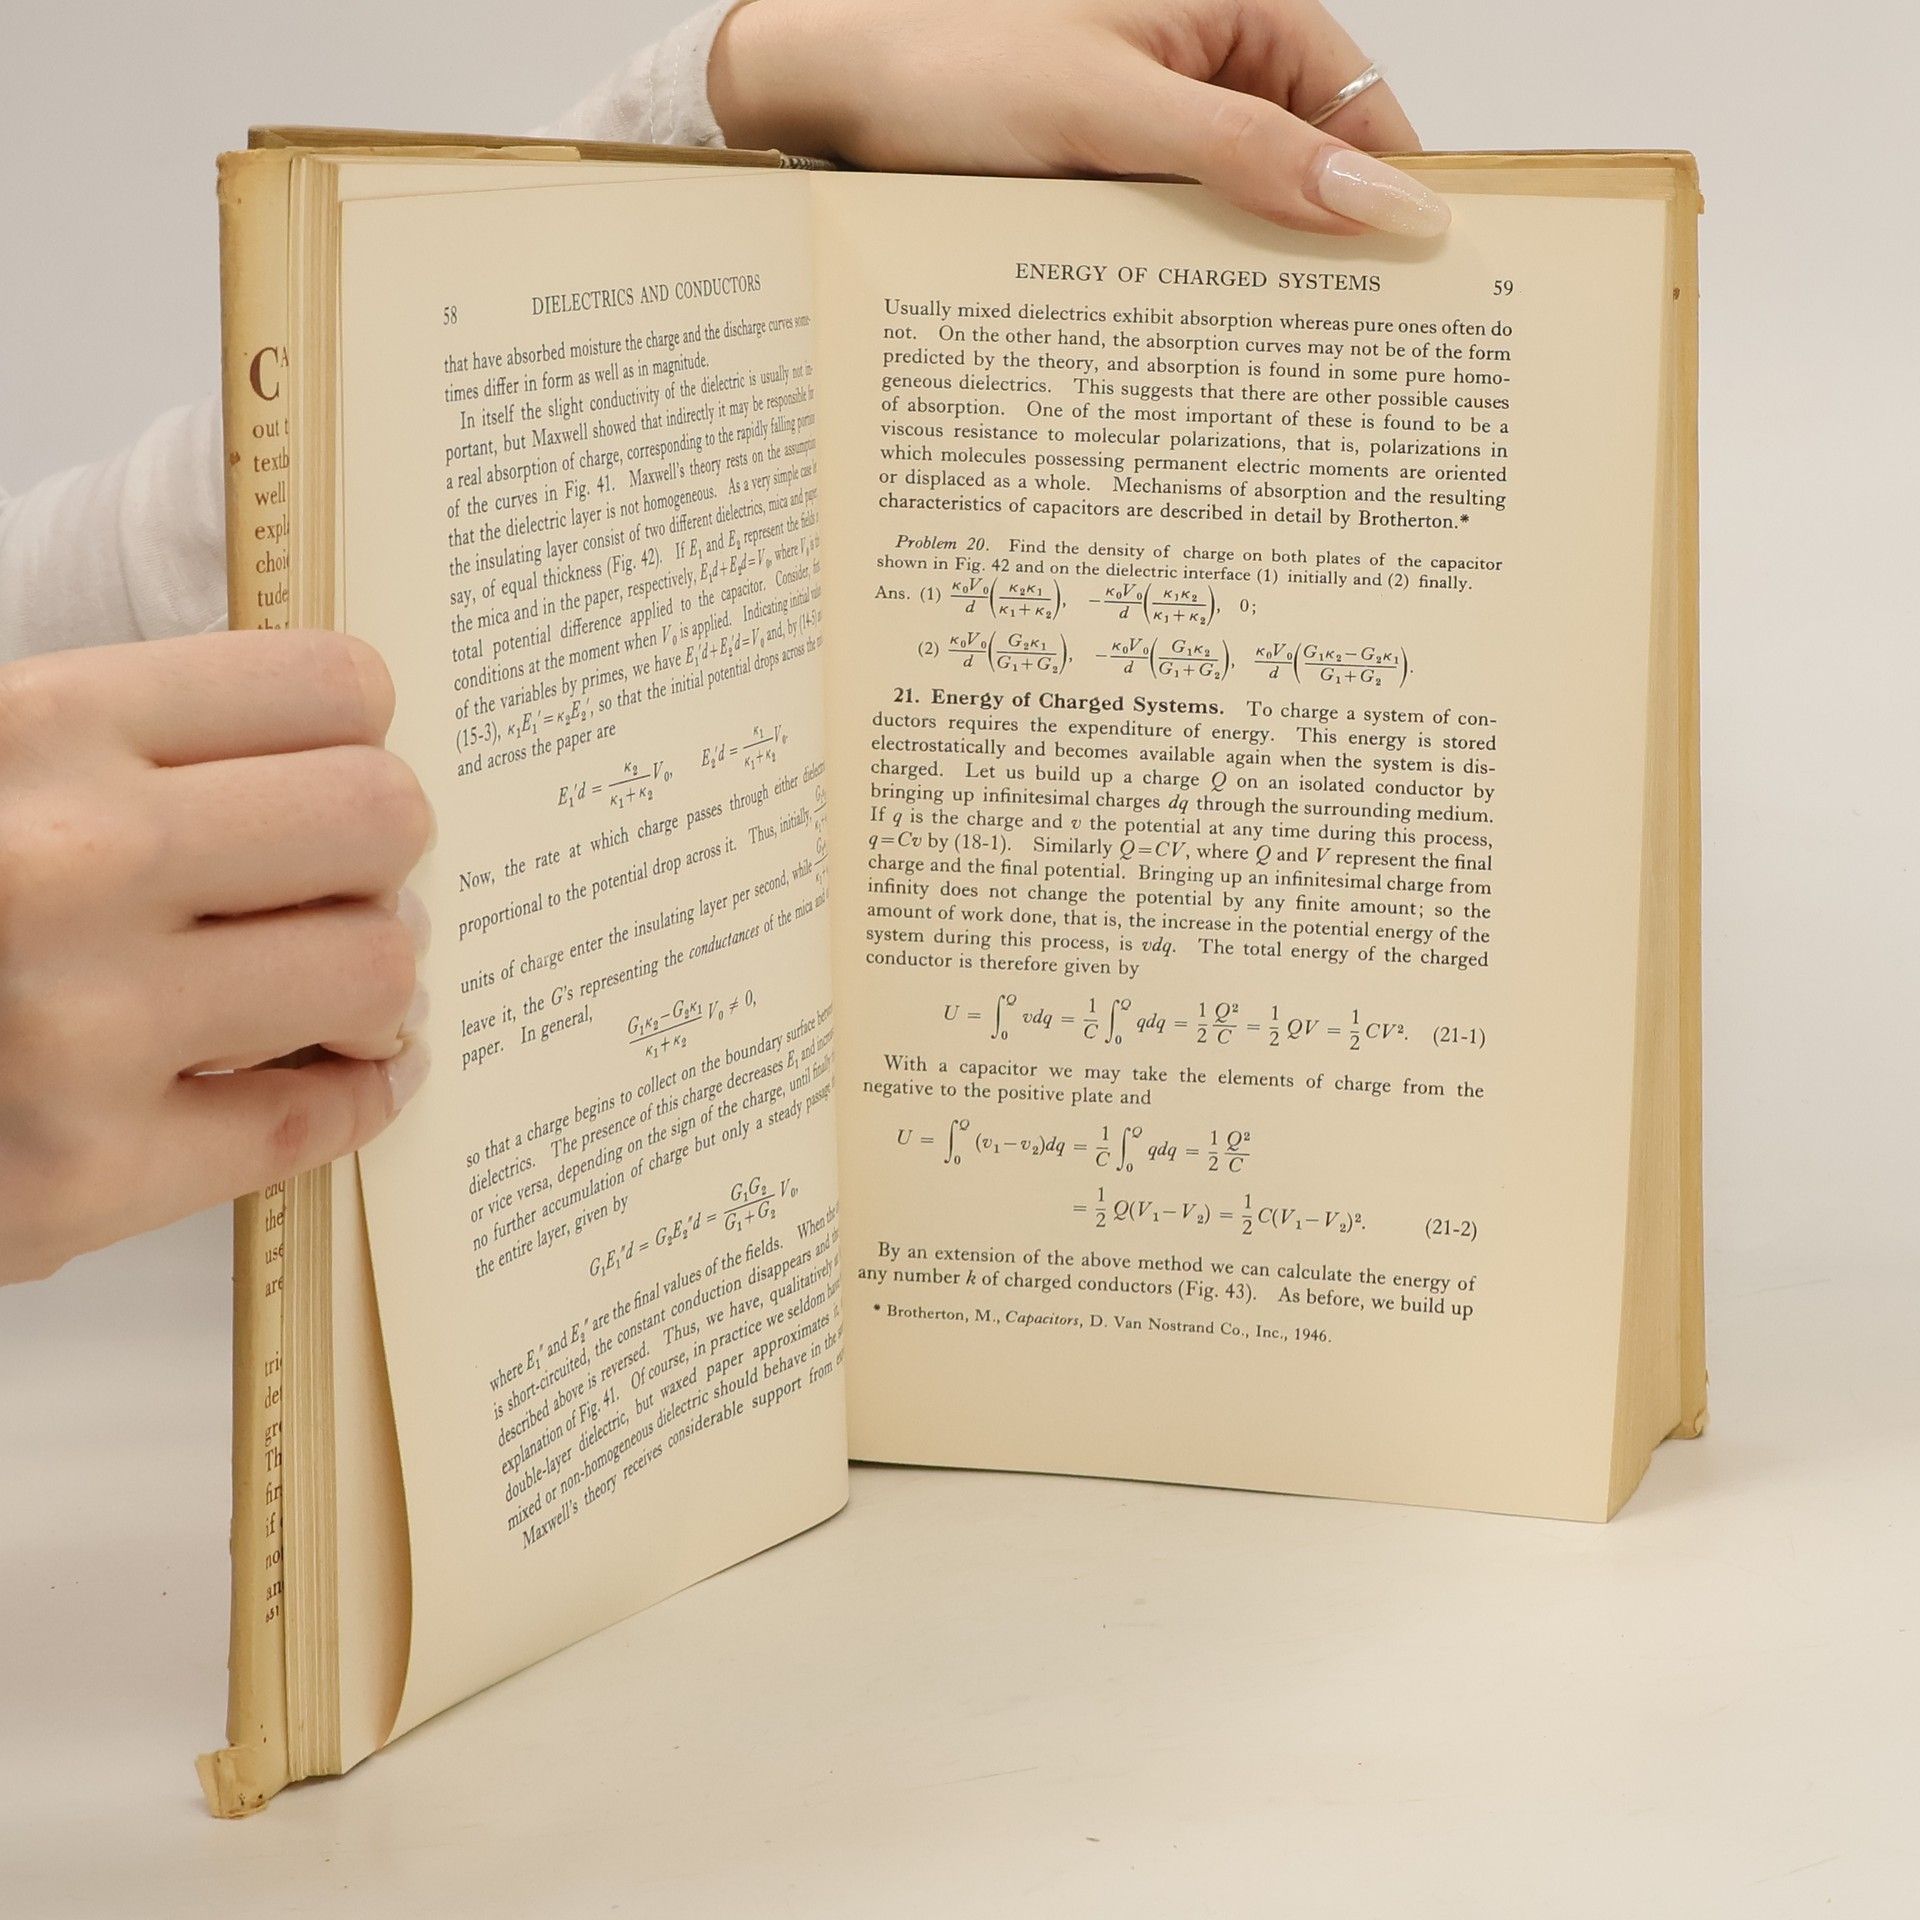 CA
out t
textb
well
expl
choi
tude
the
use
are
tri
det
gre
Th
fin
if
no
an
651
58 DIELECTRICS AND CONDUCTORS
that have absorbed moisture the charge and the discharge curves some-
times differ in form as well as in magnitude.
In itself the slight conductivity of the dielectric is usually not in-
portant, but Maxwell showed that indirectly it may be responsible for
a real absorption of charge, corresponding to the rapidly falling
of the curves in Fig. 41. Maxwell's theory rests on the assumption
that the dielectric layer is not homogeneous. As a very simple case
the insulating layer consist of two different dielectrics, mica and paper,
say, of equal thickness (Fig. 42). If E₁ and E₂ represent the fields
the mica and in the paper, respectively, E₁d+E₂d=V₀, where V₀ is
total potential difference applied to the capacitor. Consider,
conditions at the moment when V₀ is applied. Indicating initial
of the variables by primes, we have E₁′d+E₂′d=V₀ and, by (14-5)
(15-3), κ₁E₁′=κ₂E₂′, so that the initial potential drops across the
and across the paper are
E₁′d = κ₂/(κ₁+κ₂) V₀, E₂′d = κ₁/(κ₁+κ₂) V₀.
Now, the rate at which charge passes through either
proportional to the potential drop across it. Thus, initially,
units of charge enter the insulating layer per second, while
leave it, the G's representing the conductances of the mica and
paper. In general,
(G₁κ₂−G₂κ₁)/(κ₁+κ₂) V₀ ≠ 0,
so that a charge begins to collect on the boundary surface
dielectrics. The presence of this charge decreases E₁ and
or vice versa, depending on the sign of the charge, until finally
no further accumulation of charge but only a steady passage
the entire layer, given by
G₁E₁″d = G₂E₂″d = G₁G₂/(G₁+G₂) V₀,
where E₁″ and E₂″ are the final values of the fields. When the
is short-circuited, the constant conduction disappears and
described above is reversed. Thus, we have, qualitatively
explanation of Fig. 41. Of course, in practice we seldom
double-layer dielectric, but waxed paper approximates it,
mixed or non-homogeneous dielectric should behave in the
Maxwell's theory receives considerable support from
ENERGY OF CHARGED SYSTEMS 59
Usually mixed dielectrics exhibit absorption whereas pure ones often do
not. On the other hand, the absorption curves may not be of the form
predicted by the theory, and absorption is found in some pure homo-
geneous dielectrics. This suggests that there are other possible causes
of absorption. One of the most important of these is found to be a
viscous resistance to molecular polarizations, that is, polarizations in
which molecules possessing permanent electric moments are oriented
or displaced as a whole. Mechanisms of absorption and the resulting
characteristics of capacitors are described in detail by Brotherton.*
Problem 20. Find the density of charge on both plates of the capacitor
shown in Fig. 42 and on the dielectric interface (1) initially and (2) finally.
Ans. (1) κ₀V₀/d (κ₂κ₁/(κ₁+κ₂)), −κ₀V₀/d (κ₁κ₂/(κ₁+κ₂)), 0;
(2) κ₀V₀/d (G₂κ₁/(G₁+G₂)), −κ₀V₀/d (G₁κ₂/(G₁+G₂)), κ₀V₀/d ((G₁κ₂−G₂κ₁)/(G₁+G₂)).
21. Energy of Charged Systems. To charge a system of con-
ductors requires the expenditure of energy. This energy is stored
electrostatically and becomes available again when the system is dis-
charged. Let us build up a charge Q on an isolated conductor by
bringing up infinitesimal charges dq through the surrounding medium.
If q is the charge and v the potential at any time during this process,
q=Cv by (18-1). Similarly Q=CV, where Q and V represent the final
charge and the final potential. Bringing up an infinitesimal charge from
infinity does not change the potential by any finite amount; so the
amount of work done, that is, the increase in the potential energy of the
system during this process, is vdq. The total energy of the charged
conductor is therefore given by
U = ∫₀^Q vdq = 1/C ∫₀^Q qdq = 1/2 Q²/C = 1/2 QV = 1/2 CV². (21-1)
With a capacitor we may take the elements of charge from the
negative to the positive plate and
U = ∫₀^Q (v₁−v₂)dq = 1/C ∫₀^Q qdq = 1/2 Q²/C
= 1/2 Q(V₁−V₂) = 1/2 C(V₁−V₂)². (21-2)
By an extension of the above method we can calculate the energy of
any number k of charged conductors (Fig. 43). As before, we build up
* Brotherton, M., Capacitors, D. Van Nostrand Co., Inc., 1946.